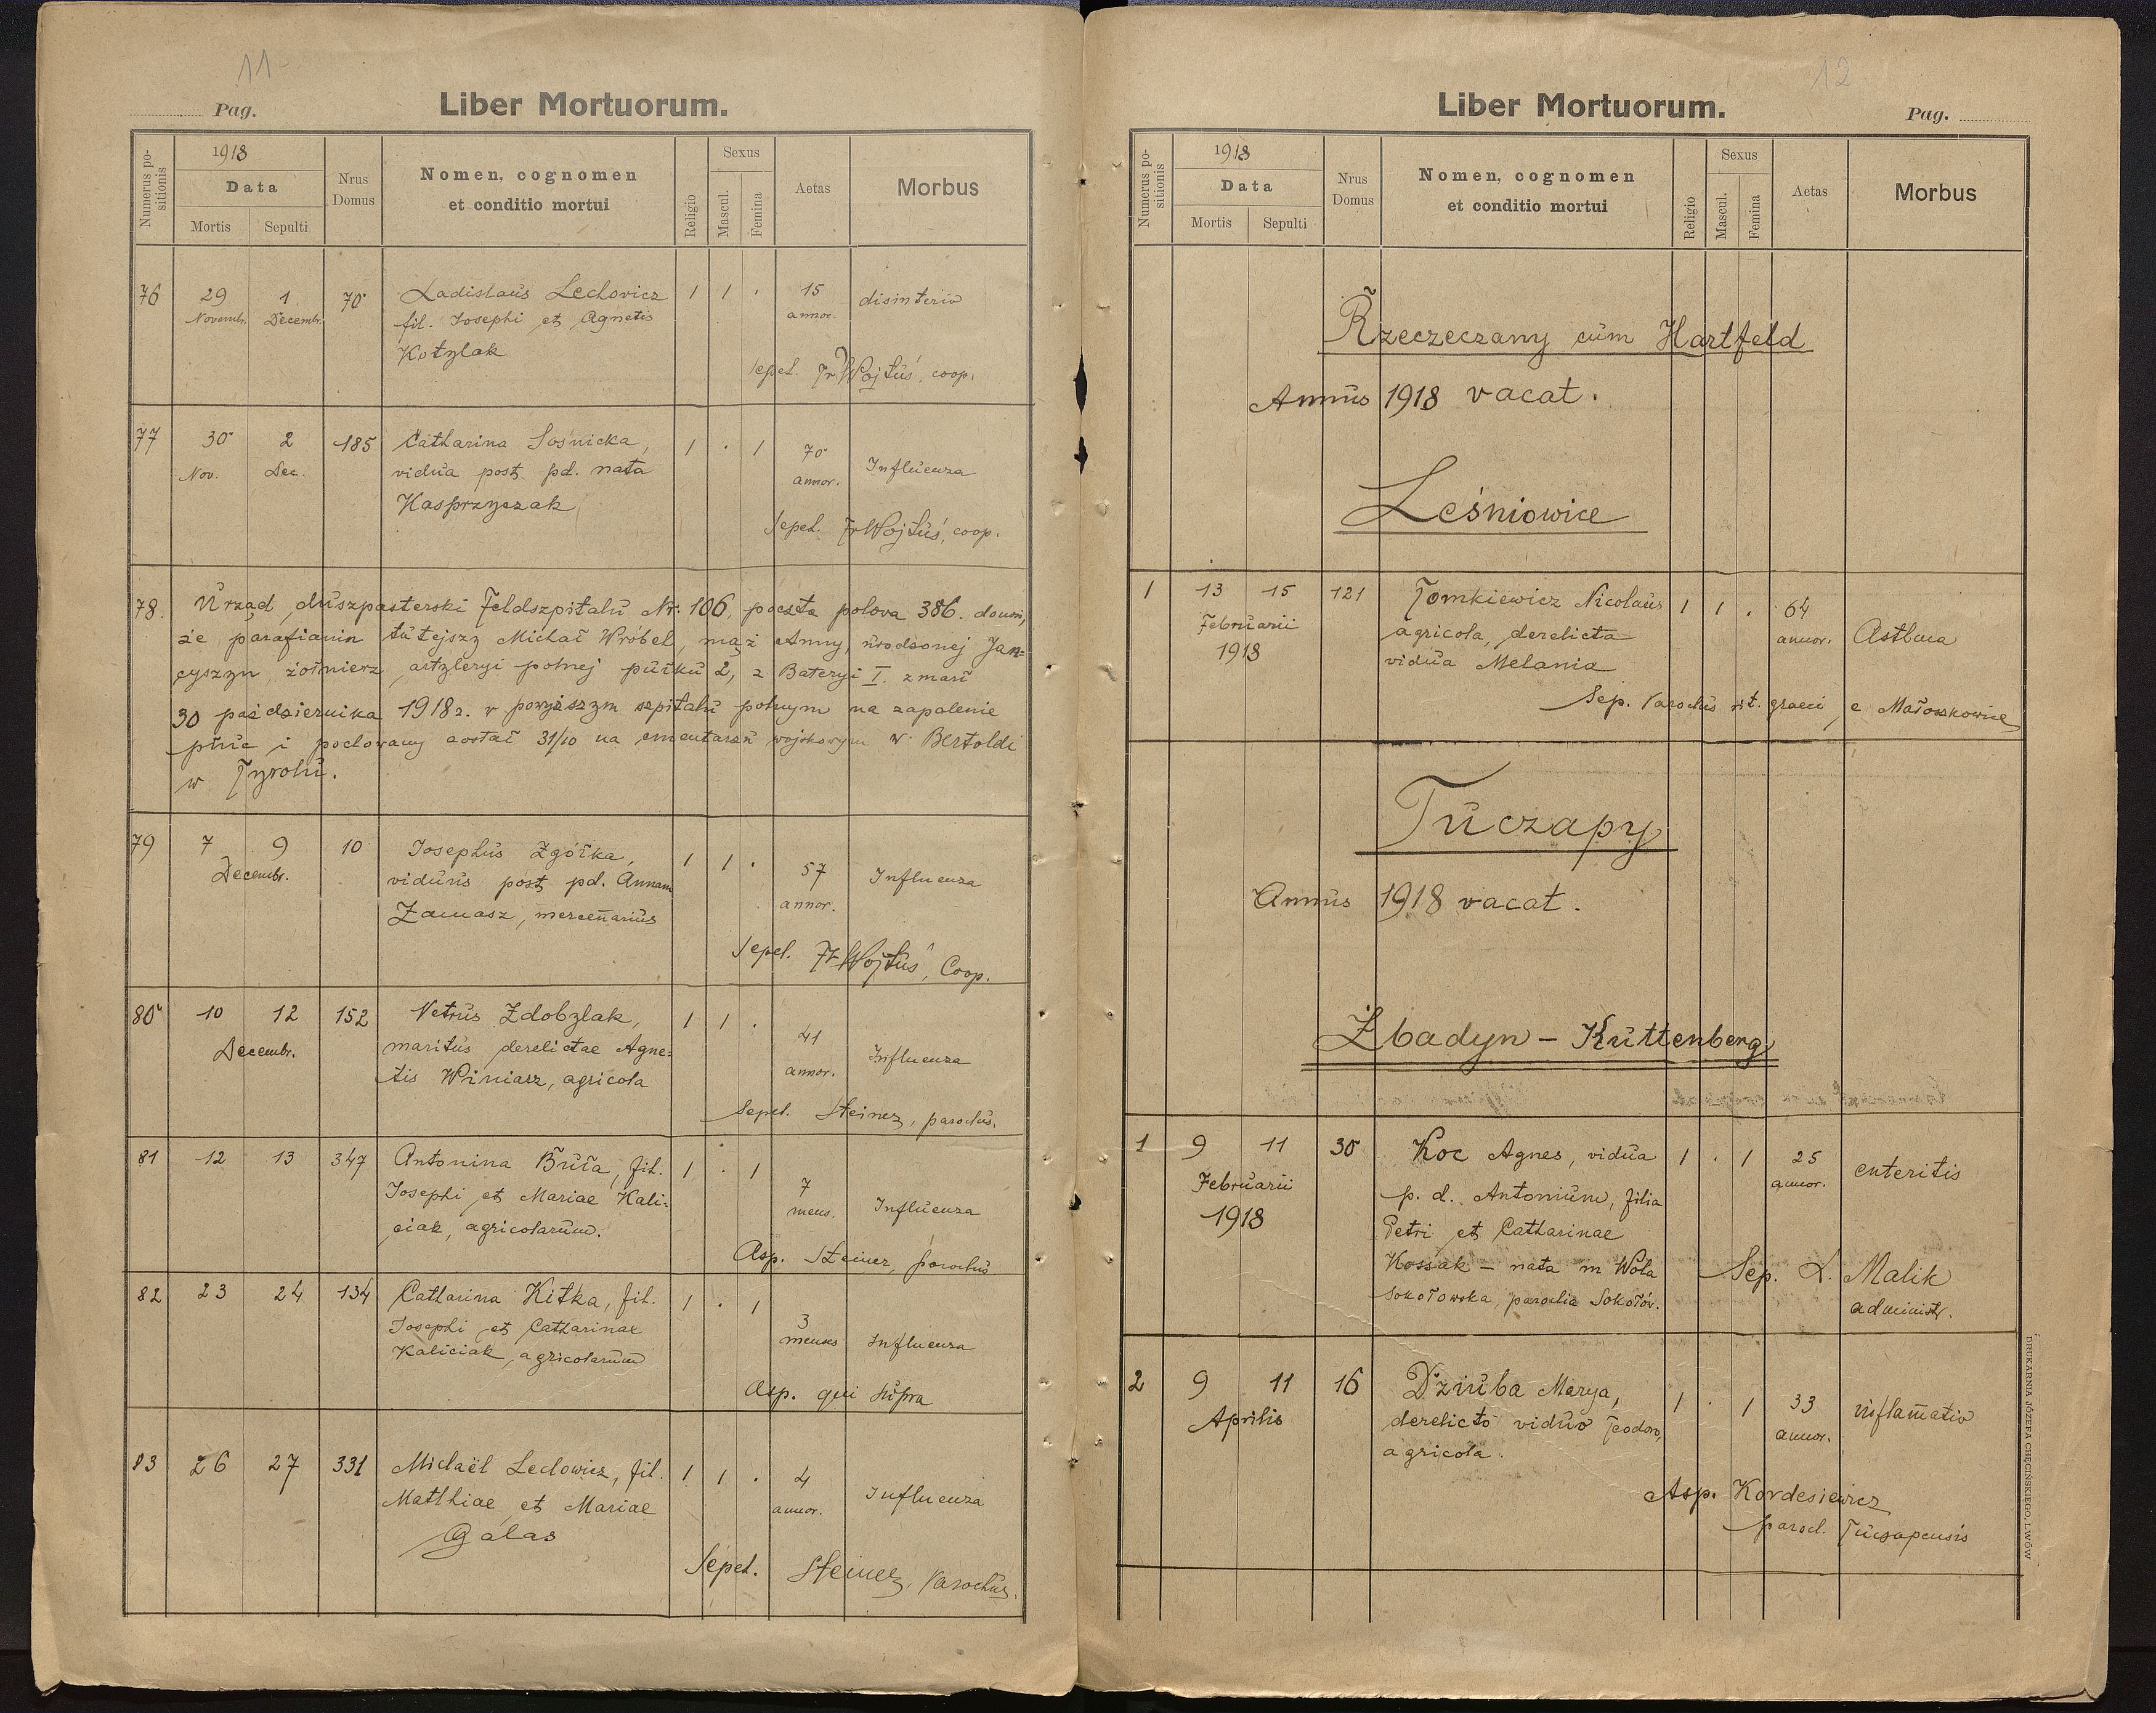 11
Pag.
Liber Mortuorum.
Numerus positionis
1918
Data
Mortis
Sepulti
Nrus Domus
Nomen, cognomen
et conditio mortui
Religio
Sexus
Mascul.
Femina
Aetas
Morbus
76 29 1 70 Ladislaus Lechowicz 1 1 . 15 disinteria
Novembr. Decembr. fil. Josephi et Agnetis annor.
Kotylak
Sepel. Fr. Wojtuś, coop.
77 30 2 185 Catharina Sośnicka, 1 . 1 70 Influenza
Nov. Dec. vidua post pd. nata annor.
Kasprzyczak
Sepel. Fr Wojtuś, coop.
78. Urząd duszpasterski Feldszpitalu Nr. 106, poczta polowa 386. donosi,
że parafianin tutejszy Michał Wróbel, mąż Anny, urodzonej Jan=
cyszyn, żołnierz artyleryi polnej pułku 2, z Bateryi I. zmarł
30 października 1918 r. w powyższym szpitalu polnym na zapalenie
płuc i pochowany został 31/10 na cmentarzu wojskowym w Bertoldi
w Tyrolu.
79 7 9 10 Josephus Zgółka, 1 1 . 57 Influenza
Decembr. viduus post pd. Annam annor.
Zamasz, mercenarius
Sepel. Fr Wojtuś, Coop.
80 10 12 152 Petrus Zdobylak, 1 1 . 41 Influenza
Decembr. maritus derelictae Agne= annor.
tis Winiarz, agricola
Sepel. Steiner, parochus.
81 12 13 347 Antonina Buła, fil. 1 . 1 7 Influenza
Josephi et Mariae Kali= mens.
ciak, agricolarum.
Asp. Steiner, parochus
82 23 24 134 Catharina Kitka, fil. 1 . 1 3 Influenza
Josephi et Catharinae menses
Kaliciak, agricolarum
Asp. qui supra
83 26 27 331 Michaël Lechowicz, fil. 1 1 . 4 Influenza
Matthiae et Mariae annor.
Galas
Sepel. Steiner, Parochus.
12
Liber Mortuorum.
Pag.
Numerus positionis
1918
Data
Mortis
Sepulti
Nrus Domus
Nomen, cognomen
et conditio mortui
Religio
Sexus
Mascul.
Femina
Aetas
Morbus
Rzeczeczany cum Hartfeld
Annus 1918 vacat.
Leśniowice
1 13 15 121 Tomkiewicz Nicolaus 1 1 . 64 Asthma
Februarii agricola, derelicta annor.
1918 vidua Melania
Sep. Parochus rit. graeci e Małoszkowice
Tuczapy
Annus 1918 vacat.
Zbadyn - Kuttenberg
1 9 11 30 Koc Agnes, vidua 1 . 1 25 enteritis
Februarii p. d. Antonium, filia annor.
1918 Petri et Catharinae
Kossak - nata in Wola
Sokołowska, parochia Sokołów.
Sep. L. Malik
administr.
2 9 11 16 Dziuba Marya, 1 . 1 33 inflamatio
Aprilis derelicto viduo Teodoro, annor.
agricola.
Asp. Kordesiewicz
paroch. Tuczapensis
DRUKARNIA JÓZEFA CHĘCIŃSKIEGO, LWÓW